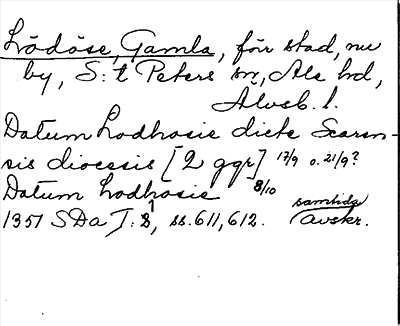 Lödöse, Gamla, förr stad, nu
by, S:t Peters sn, Ale hd,
Älvsb. l.
Datum Lodhosie dicte Scaren-
sis diocesis [2 ggr] 17/9 o. 21/9?
Datum Lodhosie 8/10
1357 SDa I: 8, ss. 611, 612. samtida
avskr.